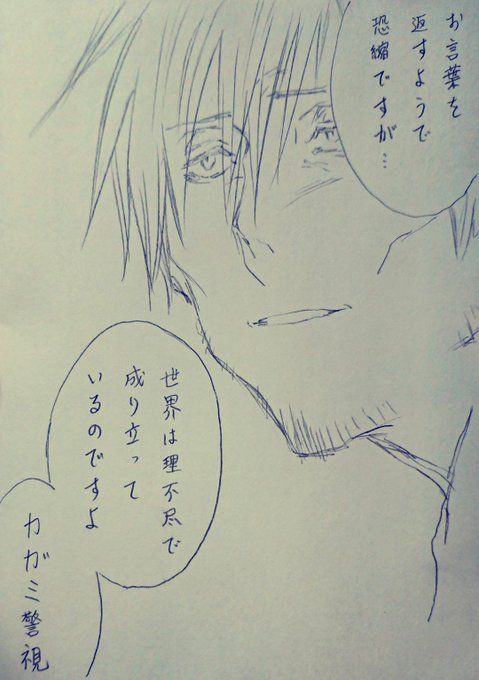 お言葉を
返すようで
恐縮ですが…
世界は理不尽で
成り立って
いるのですよ
カガミ警視